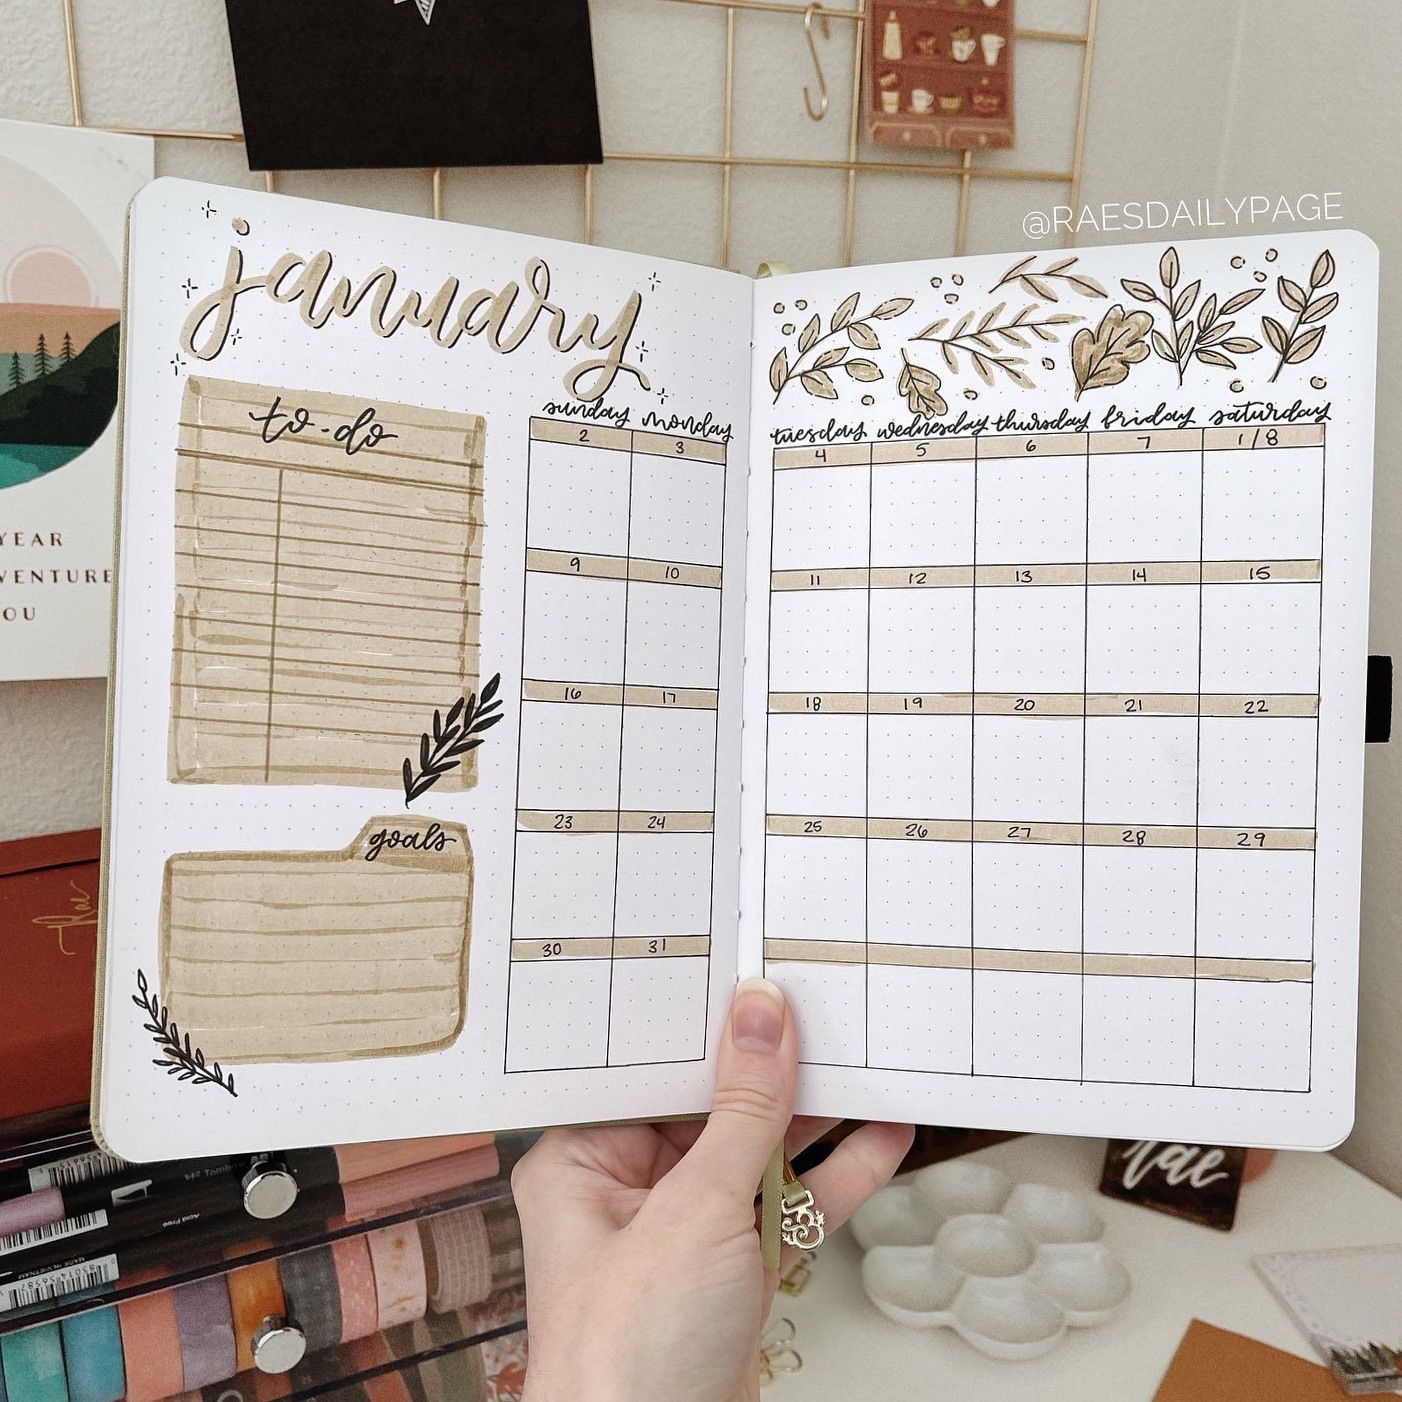 @RAESDAILYPAGE
january
to-do
goals
sunday monday tuesday wednesday thursday friday saturday
2 3 4 5 6 7 1/8
9 10 11 12 13 14 15
16 17 18 19 20 21 22
23 24 25 26 27 28 29
30 31
YEAR
VENTURE
OU
Rae
Tombow
Acid Free
MADE IN VIETNAM
rae